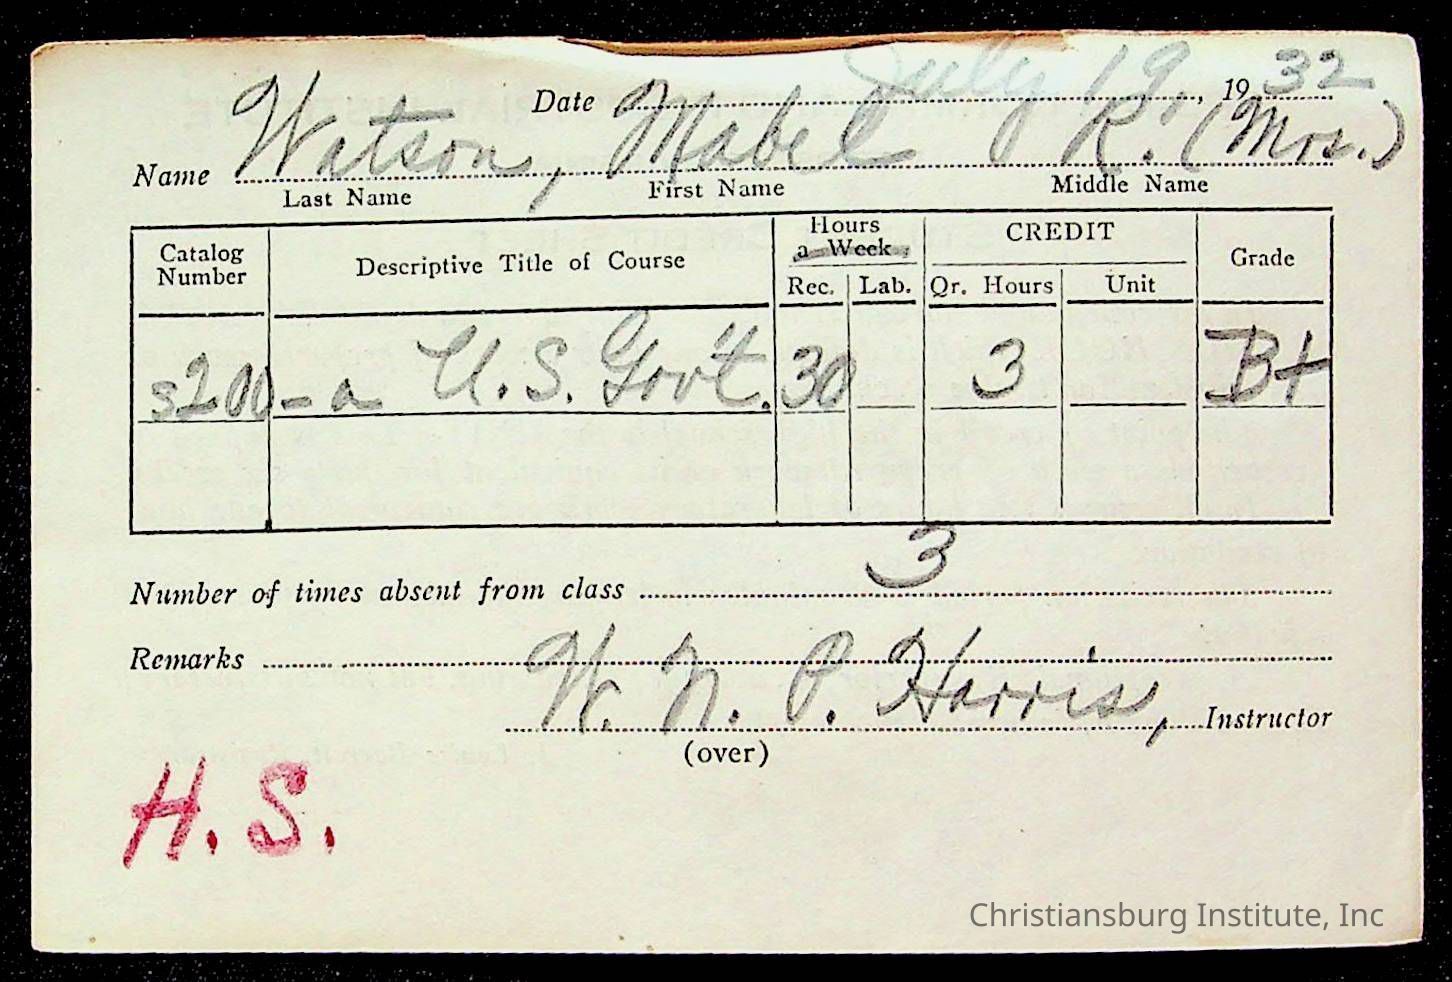 Date July 19, 1932
Name Watson, Mabel R. (Mrs.)
Last Name First Name Middle Name
Catalog Number Descriptive Title of Course Hours a Week CREDIT Grade
Rec. Lab. Qr. Hours Unit
s200-a U.S. Gov't. 30 3 B+
Number of times absent from class 3
Remarks
W. N. P. Harris, Instructor
(over)
H. S.
Christiansburg Institute, Inc